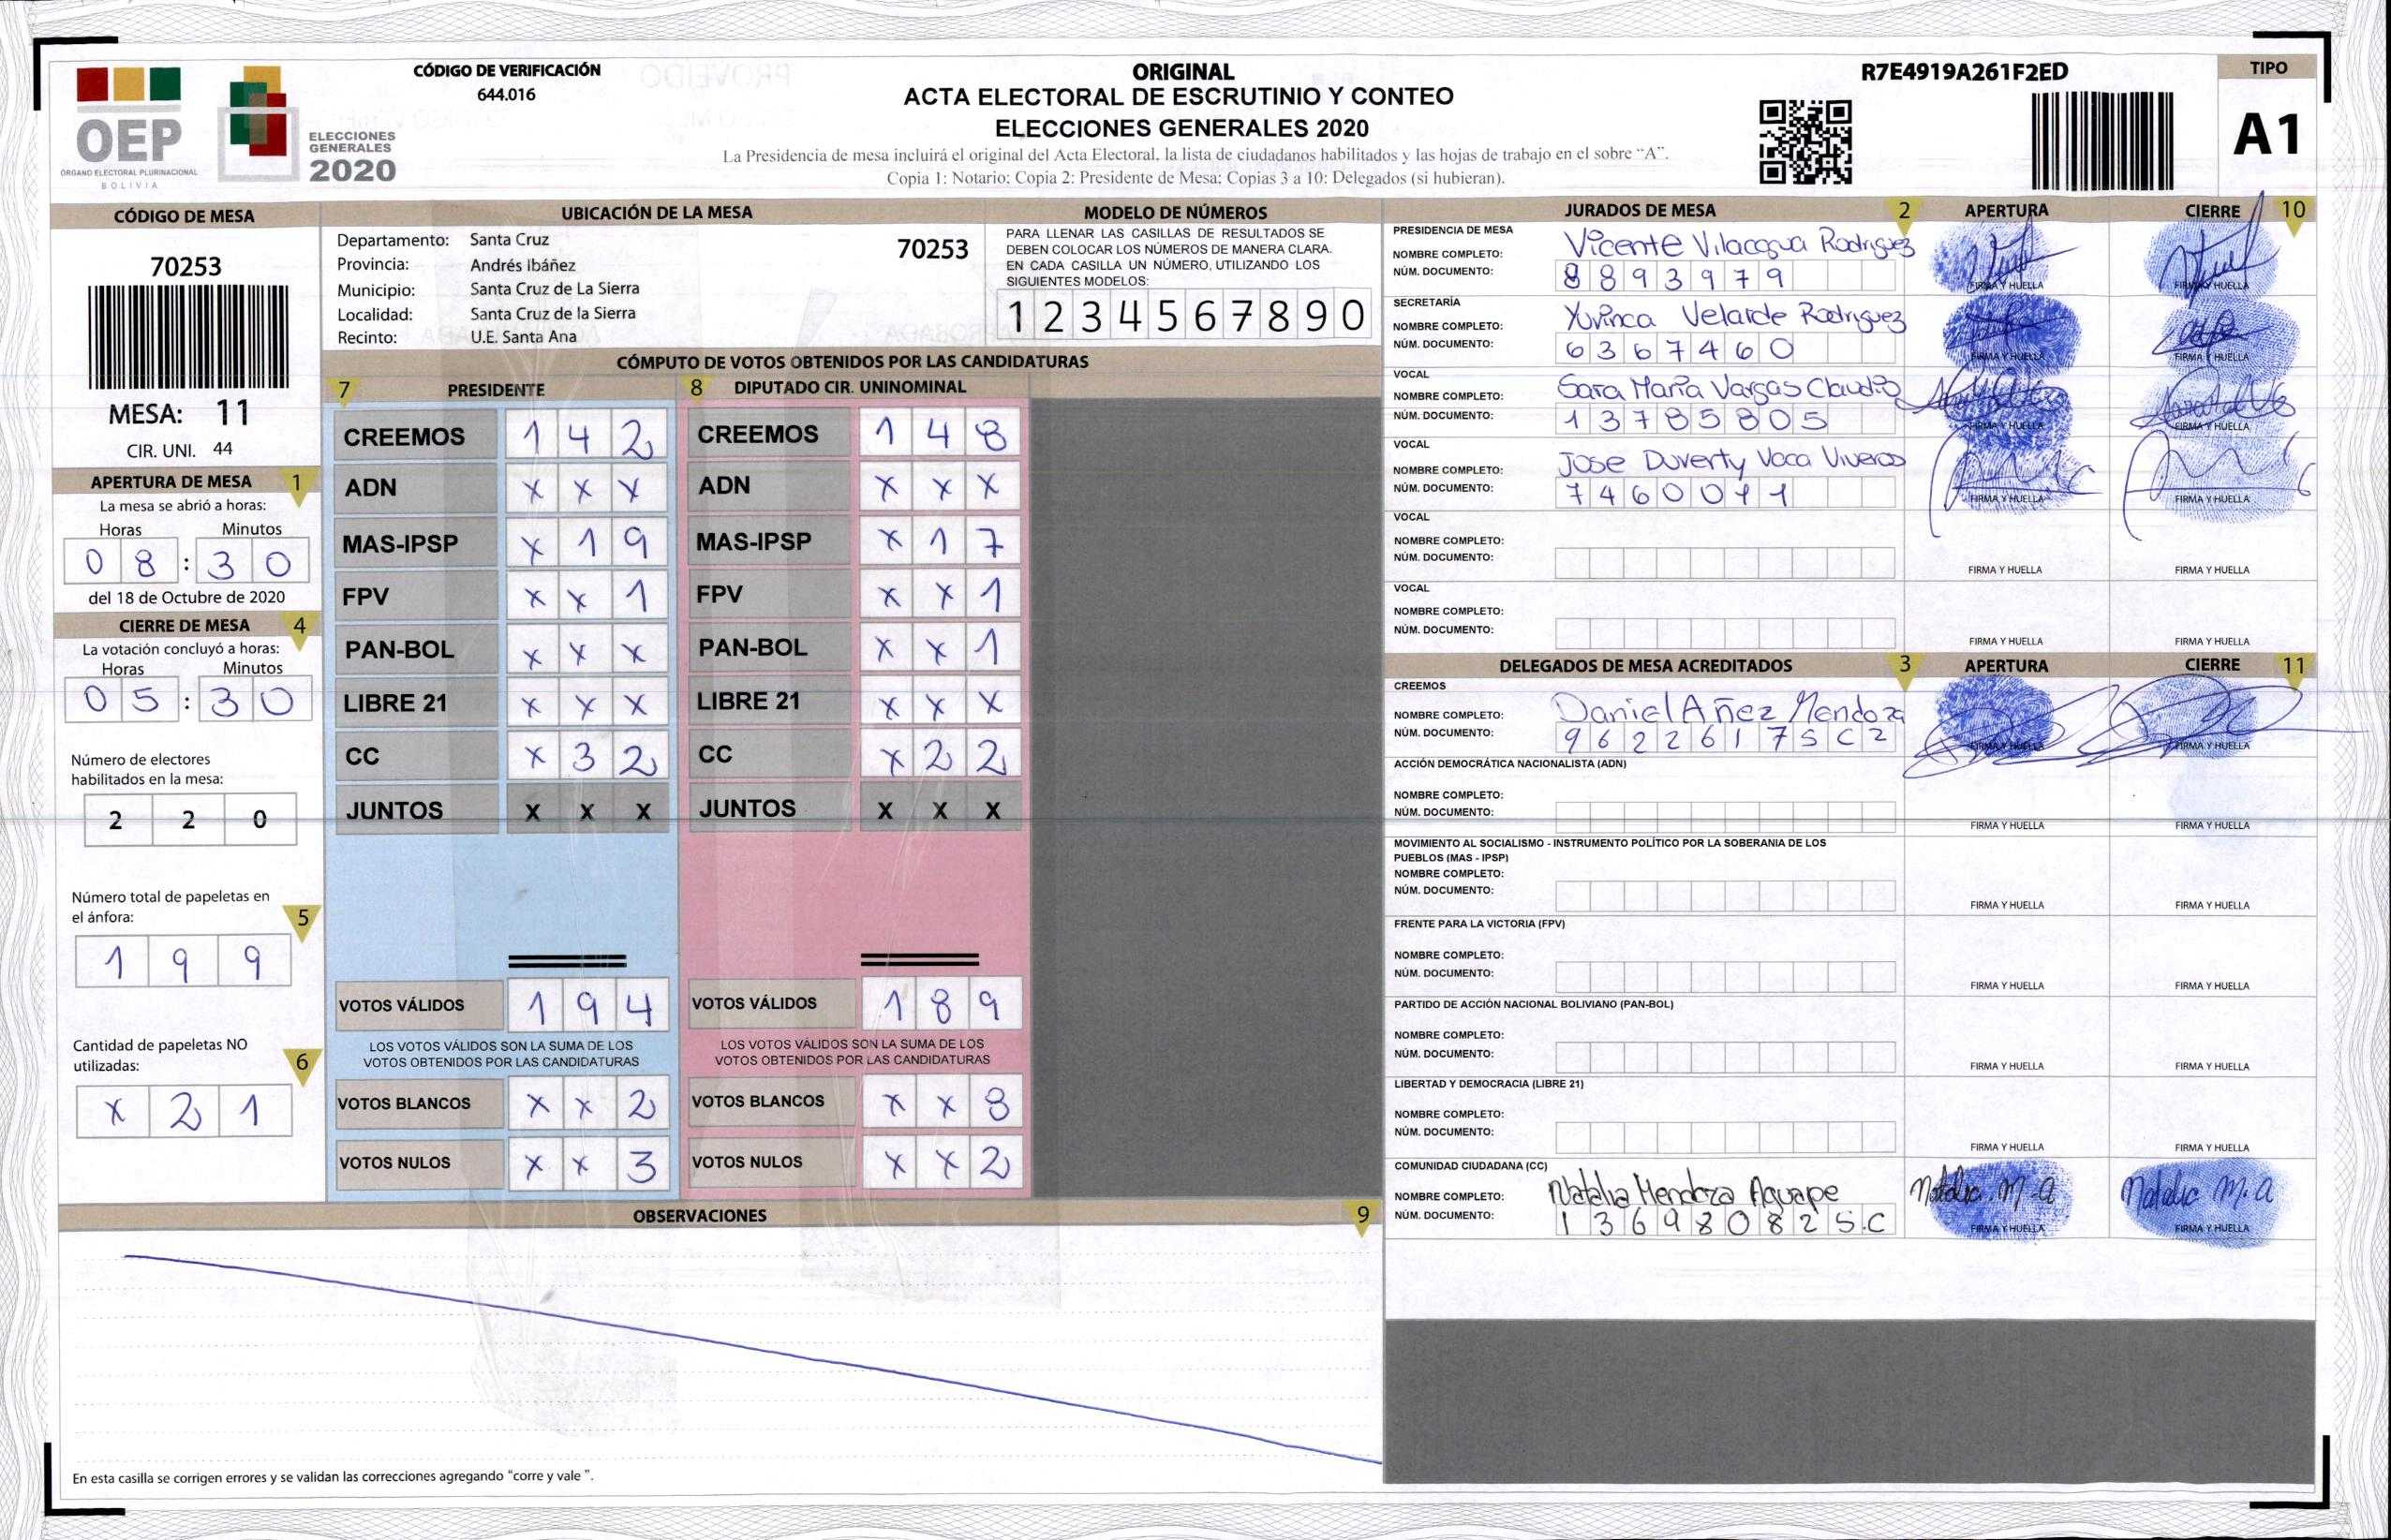 OEP
ÓRGANO ELECTORAL PLURINACIONAL
BOLIVIA
ELECCIONES
GENERALES
2020
CÓDIGO DE VERIFICACIÓN
644.016
ORIGINAL
ACTA ELECTORAL DE ESCRUTINIO Y CONTEO
ELECCIONES GENERALES 2020
La Presidencia de mesa incluirá el original del Acta Electoral, la lista de ciudadanos habilitados y las hojas de trabajo en el sobre “A”.
Copia 1: Notario; Copia 2: Presidente de Mesa; Copias 3 a 10: Delegados (si hubieran).
R7E4919A261F2ED
TIPO
A1
CÓDIGO DE MESA
70253
MESA: 11
CIR. UNI. 44
APERTURA DE MESA 1
La mesa se abrió a horas:
Horas Minutos
08:30
del 18 de Octubre de 2020
CIERRE DE MESA 4
La votación concluyó a horas:
Horas Minutos
05:30
Número de electores
habilitados en la mesa:
2 2 0
Número total de papeletas en
el ánfora: 5
1 9 9
Cantidad de papeletas NO
utilizadas: 6
x 2 1
UBICACIÓN DE LA MESA
Departamento: Santa Cruz
70253
Provincia: Andrés Ibáñez
Municipio: Santa Cruz de La Sierra
Localidad: Santa Cruz de la Sierra
Recinto: U.E. Santa Ana
MODELO DE NÚMEROS
PARA LLENAR LAS CASILLAS DE RESULTADOS SE
DEBEN COLOCAR LOS NÚMEROS DE MANERA CLARA.
EN CADA CASILLA UN NÚMERO, UTILIZANDO LOS
SIGUIENTES MODELOS:
1 2 3 4 5 6 7 8 9 0
CÓMPUTO DE VOTOS OBTENIDOS POR LAS CANDIDATURAS
7 PRESIDENTE
CREEMOS 1 4 2
ADN x x x
MAS-IPSP x 1 9
FPV x x 1
PAN-BOL x x x
LIBRE 21 x x x
CC x 3 2
JUNTOS X X X
VOTOS VÁLIDOS 1 9 4
LOS VOTOS VÁLIDOS SON LA SUMA DE LOS
VOTOS OBTENIDOS POR LAS CANDIDATURAS
VOTOS BLANCOS x x 2
VOTOS NULOS x x 3
8 DIPUTADO CIR. UNINOMINAL
CREEMOS 1 4 8
ADN x x x
MAS-IPSP x 1 7
FPV x x 1
PAN-BOL x x 1
LIBRE 21 x x x
CC x 2 2
JUNTOS X X X
VOTOS VÁLIDOS 1 8 9
LOS VOTOS VÁLIDOS SON LA SUMA DE LOS
VOTOS OBTENIDOS POR LAS CANDIDATURAS
VOTOS BLANCOS x x 8
VOTOS NULOS x x 2
OBSERVACIONES 9
En esta casilla se corrigen errores y se validan las correcciones agregando “corre y vale ”.
JURADOS DE MESA 2 APERTURA CIERRE 10
PRESIDENCIA DE MESA
NOMBRE COMPLETO: Vicente Vilacgua Rodriguez
NÚM. DOCUMENTO: 8893979
FIRMA Y HUELLA FIRMA Y HUELLA
SECRETARÍA
NOMBRE COMPLETO: Yvinca Velarde Rodriguez
NÚM. DOCUMENTO: 6367460
FIRMA Y HUELLA FIRMA Y HUELLA
VOCAL
NOMBRE COMPLETO: Sara Maria Vargas Claudio
NÚM. DOCUMENTO: 13785805
FIRMA Y HUELLA FIRMA Y HUELLA
VOCAL
NOMBRE COMPLETO: Jose Duverty Vaca Viveros
NÚM. DOCUMENTO: 7460091
FIRMA Y HUELLA FIRMA Y HUELLA
VOCAL
NOMBRE COMPLETO:
NÚM. DOCUMENTO:
FIRMA Y HUELLA FIRMA Y HUELLA
VOCAL
NOMBRE COMPLETO:
NÚM. DOCUMENTO:
FIRMA Y HUELLA FIRMA Y HUELLA
DELEGADOS DE MESA ACREDITADOS 3 APERTURA CIERRE 11
CREEMOS
NOMBRE COMPLETO: Daniel Añez Mendoza
NÚM. DOCUMENTO: 96226175C2
FIRMA Y HUELLA FIRMA Y HUELLA
ACCIÓN DEMOCRÁTICA NACIONALISTA (ADN)
NOMBRE COMPLETO:
NÚM. DOCUMENTO:
FIRMA Y HUELLA FIRMA Y HUELLA
MOVIMIENTO AL SOCIALISMO - INSTRUMENTO POLÍTICO POR LA SOBERANIA DE LOS
PUEBLOS (MAS - IPSP)
NOMBRE COMPLETO:
NÚM. DOCUMENTO:
FIRMA Y HUELLA FIRMA Y HUELLA
FRENTE PARA LA VICTORIA (FPV)
NOMBRE COMPLETO:
NÚM. DOCUMENTO:
FIRMA Y HUELLA FIRMA Y HUELLA
PARTIDO DE ACCIÓN NACIONAL BOLIVIANO (PAN-BOL)
NOMBRE COMPLETO:
NÚM. DOCUMENTO:
FIRMA Y HUELLA FIRMA Y HUELLA
LIBERTAD Y DEMOCRACIA (LIBRE 21)
NOMBRE COMPLETO:
NÚM. DOCUMENTO:
FIRMA Y HUELLA FIRMA Y HUELLA
COMUNIDAD CIUDADANA (CC)
NOMBRE COMPLETO: Natalia Mendoza Aguape
NÚM. DOCUMENTO: 136980825.C
Natalia M.A Natalia M.A
FIRMA Y HUELLA FIRMA Y HUELLA